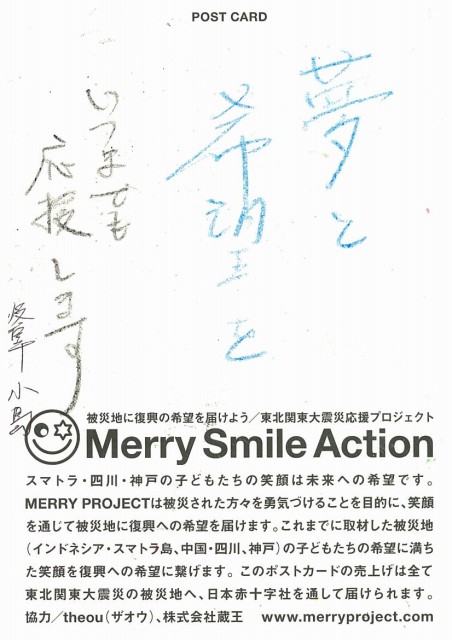 POST CARD
夢と
希望を
いつまでも
応援します
岐阜 小島
被災地に復興の希望を届けよう／東北関東大震災応援プロジェクト
Merry Smile Action
スマトラ・四川・神戸の子どもたちの笑顔は未来への希望です。
MERRY PROJECTは被災された方々を勇気づけることを目的に、笑顔
を通じて被災地に復興への希望を届けます。これまでに取材した被災地
（インドネシア・スマトラ島、中国・四川、神戸）の子どもたちの希望に満ち
た笑顔を復興への希望に繋げます。このポストカードの売上げは全て
東北関東大震災の被災地へ、日本赤十字社を通して届けられます。
協力／theou（ザオウ）、株式会社蔵王 www.merryproject.com